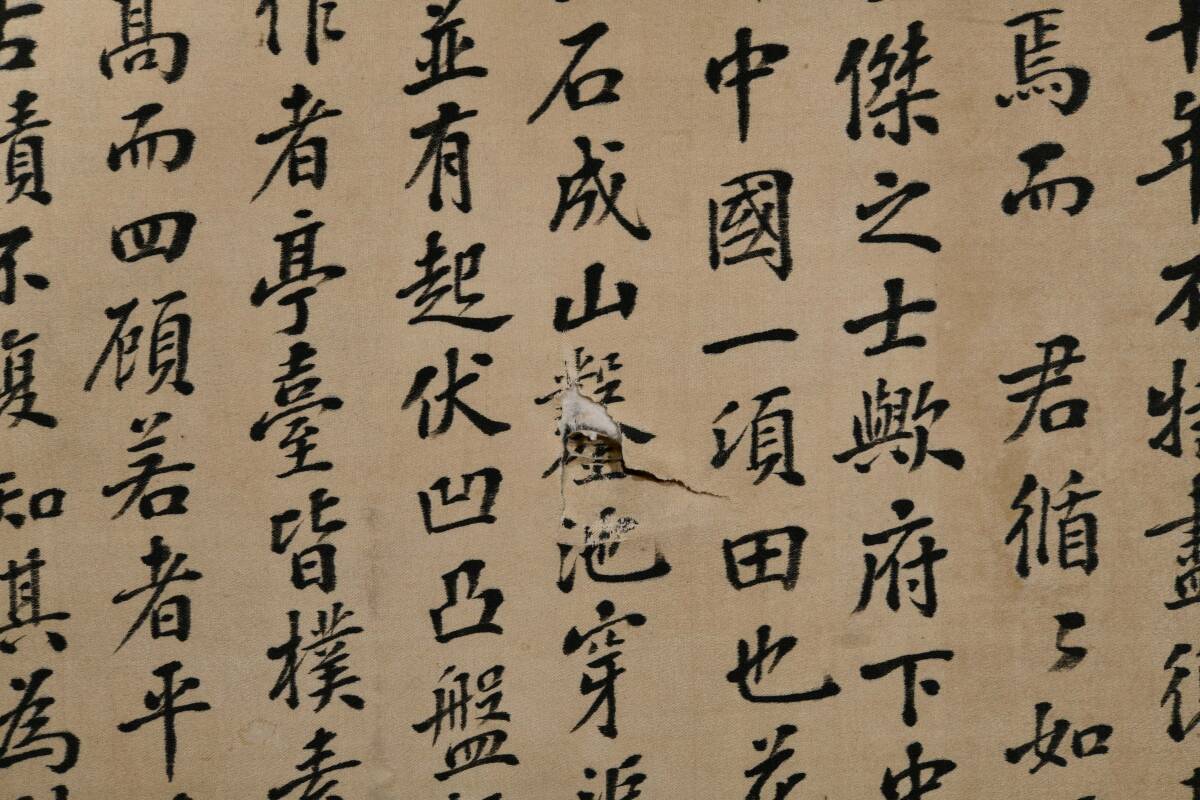 年不特盡
焉而 君循〻如
傑之士歟府下中
中國一須田也花
石成山鑿池穿
並有起伏凹凸盤
作者亭臺皆樸素
高而四顧若者平
不復知其為